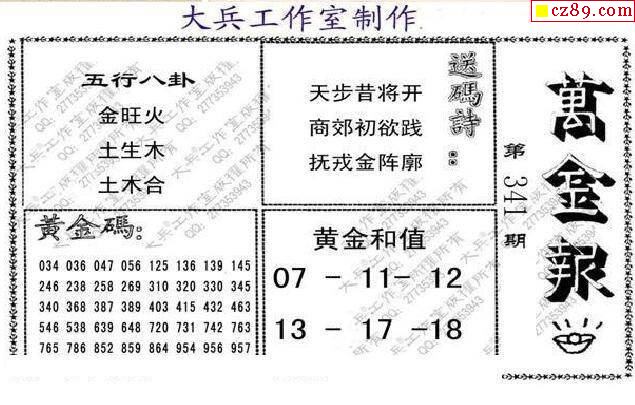 大兵工作室制作
cz89.com
五行八卦
金旺火
土生木
土木合
送碼詩：
天步昔将开
商郊初欲践
抚戎金阵廓
萬金報
第341期
黃金碼：
034 036 047 056 125 136 139 145
246 238 258 269 310 320 330 345
340 368 387 389 403 415 432 463
546 538 639 648 720 731 742 763
765 786 852 859 864 954 956 957
黄金和值
07 - 11- 12
13 - 17 -18
大兵工作室版權所有
QQ: 277353943